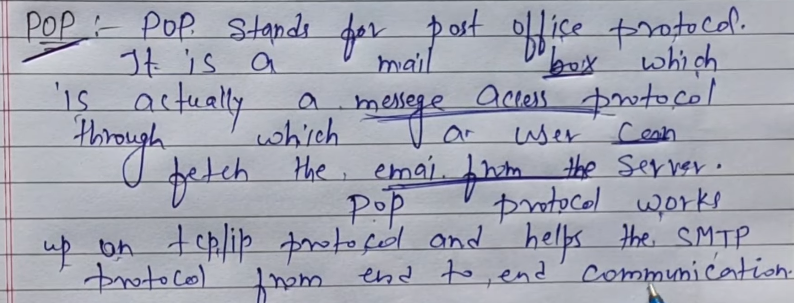 POP :- POP. Stands for post office protocol.
It is a mail box which
is actually a messege access protocol
through which ar user can
fetch the, emai. from the server.
POP protocol works
up on tcp/ip protocol and helps the SMTP
protocol from end to end communication.